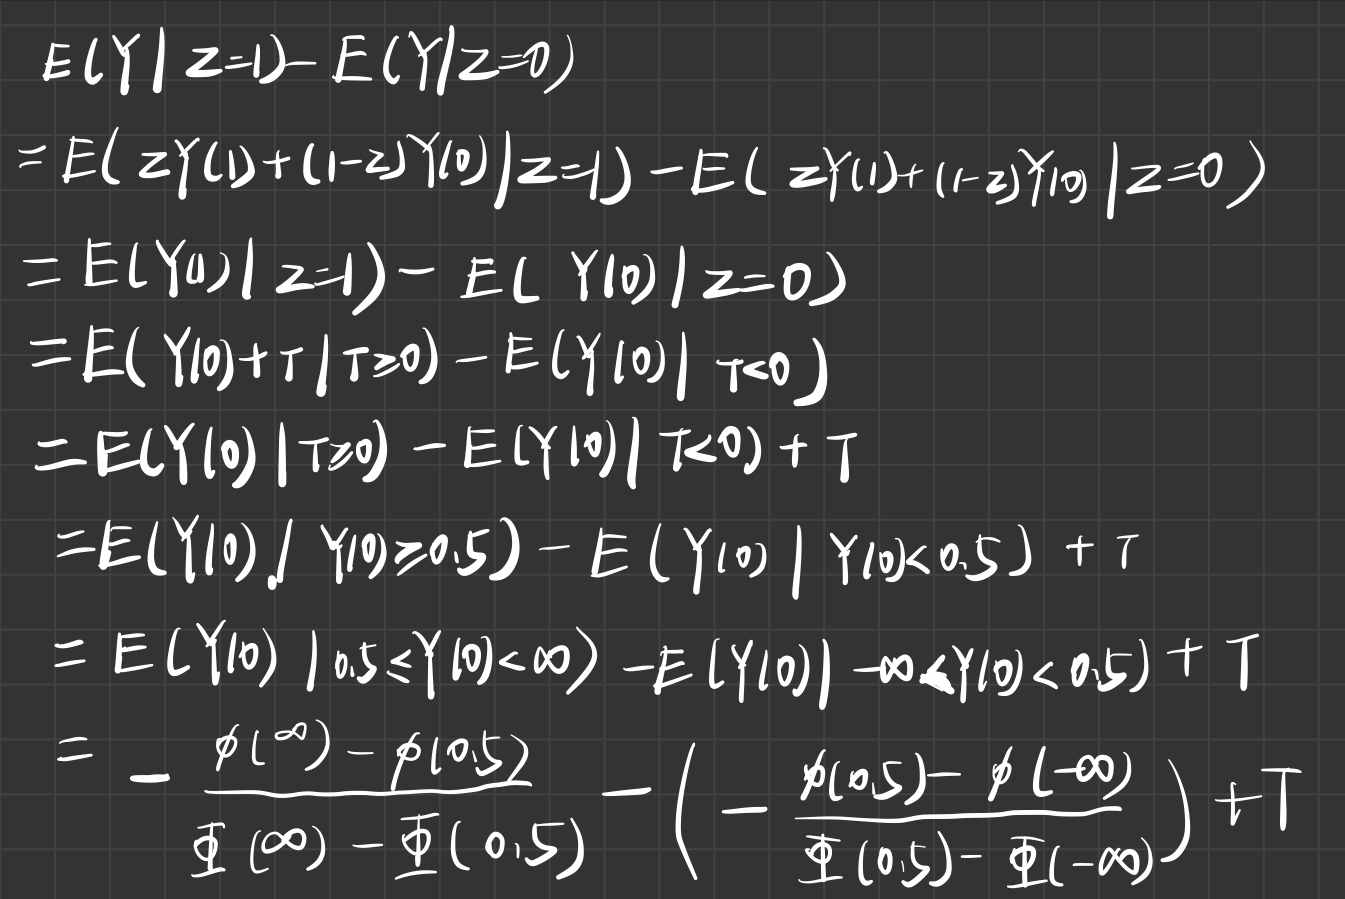 E(Y|Z=1) - E(Y|Z=0)
= E(ZY(1)+(1-Z)Y(0)|Z=1) - E(ZY(1)+(1-Z)Y(0)|Z=0)
= E(Y(1)|Z=1) - E(Y(0)|Z=0)
= E(Y(0)+T|T≥0) - E(Y(0)|T<0)
= E(Y(0)|T≥0) - E(Y(0)|T<0) + T
= E(Y(0)|Y(0)≥0.5) - E(Y(0)|Y(0)<0.5) + T
= E(Y(0)|0.5≤Y(0)<∞) - E(Y(0)|-∞<Y(0)<0.5) + T
= - (ϕ(∞) - ϕ(0.5)) / (Φ(∞) - Φ(0.5)) - (- (ϕ(0.5) - ϕ(-∞)) / (Φ(0.5) - Φ(-∞))) + T